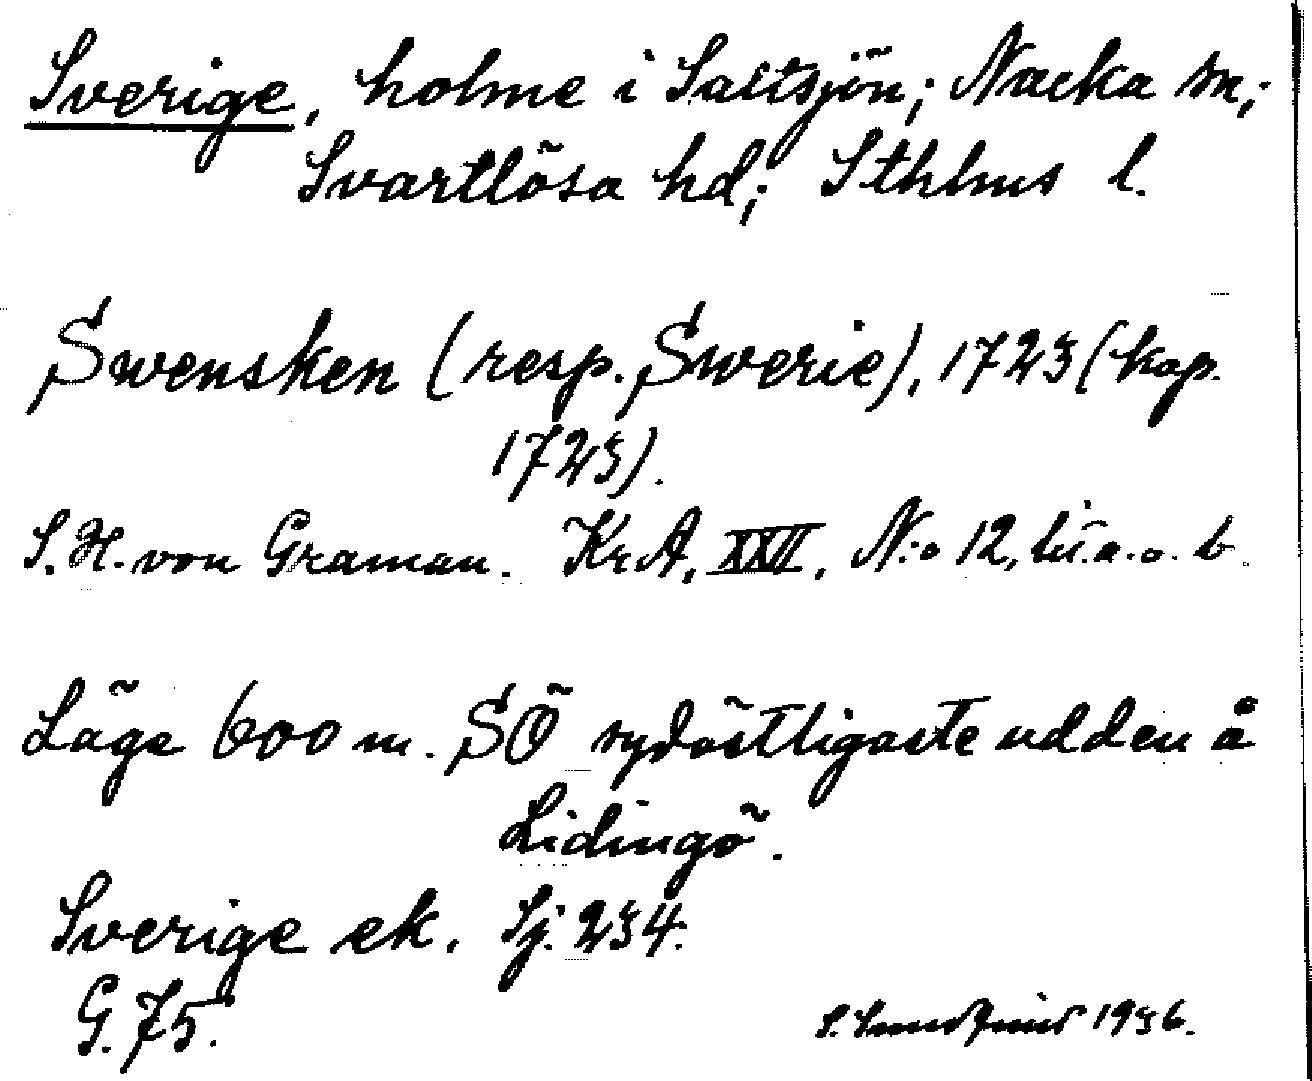 Sverige, holme i Saltsjön; Nacka sn;
Svartlösa hd; Sthlms l.
Swensken (resp. Swerie), 1723 (kop.
1723).
S. H. von Graman. Kr.A, XXII, N:o 12, lit. a. o. b.
Läge 600 m. SÖ sydöstligaste udden å
Lidingö.
Sverige ek. Sj. 234.
G. 75.
S. 1936.